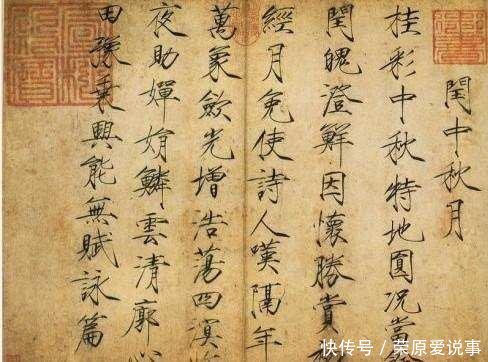 閏中秋月
桂彩中秋特地圓況當
閏魄澄鮮因懷勝賞
經月免使詩人嘆隔年
萬象斂光增浩蕩四溟
夜助嬋娟鱗雲清廓
田豫乘興能無賦詠篇
快传号/荣原爱说事